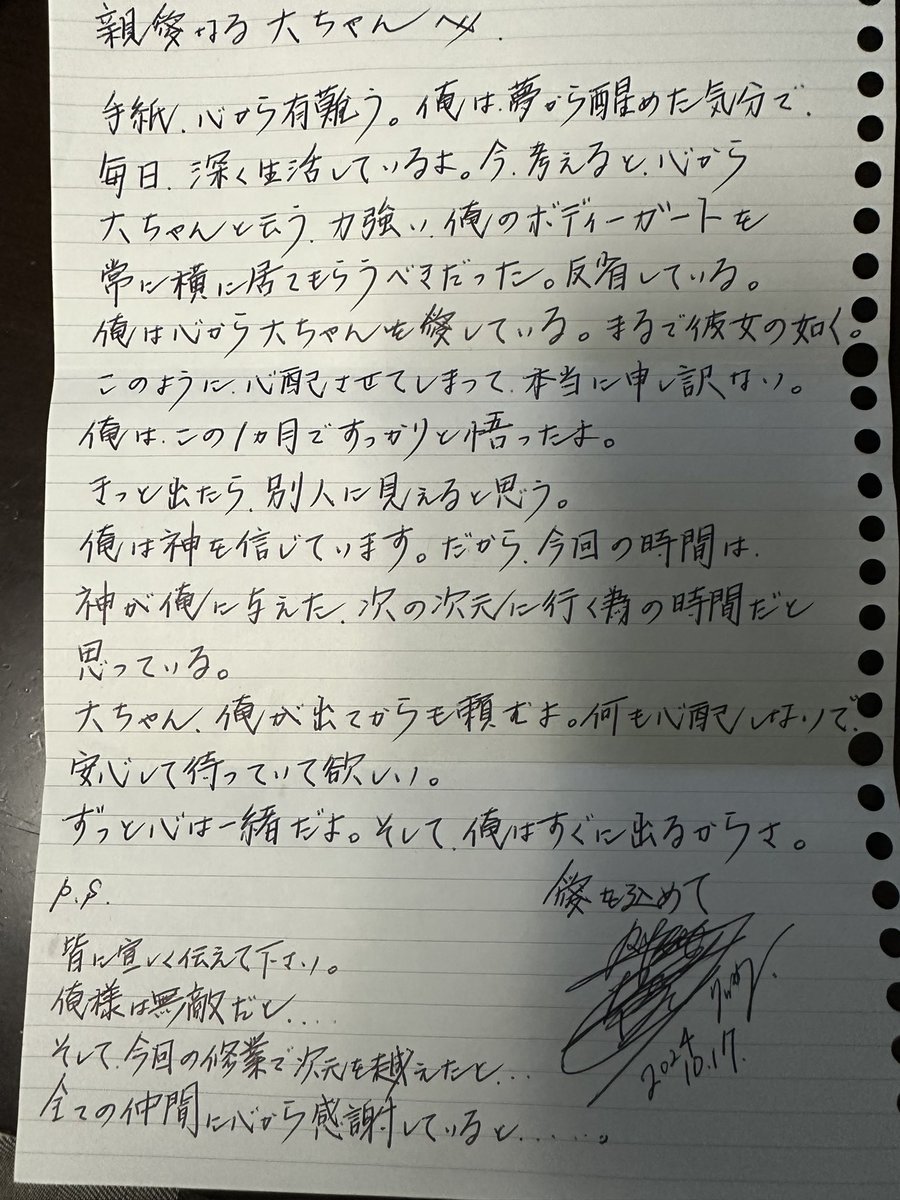 親愛なる大ちゃんへ
手紙、心から有難う。俺は、夢から醒めた気分で、
毎日、深く生活しているよ。今、考えると、心から
大ちゃんと云う、力強い、俺のボディーガートを
常に横に居てもらうべきだった。反省している。
俺は心から大ちゃんを愛している。まるで彼女の如く。
このように、心配させてしまって、本当に申し訳ない。
俺は、この1ヵ月ですっかりと悟ったよ。
きっと出たら、別人に見えると思う。
俺は神を信じています。だから、今回の時間は、
神が俺に与えた、次の次元に行く為の時間だと
思っている。
大ちゃん、俺が出てからも頼むよ。何も心配しないで、
安心して待っていて欲しい。
ずっと心は一緒だよ。そして、俺はすぐに出るからさ。
愛を込めて
2024
10.17.
P.S.
皆に宜しく伝えて下さい。
俺様は無敵だと....
そして、今回の修業で次元を越えたと...
全ての仲間に心から感謝していると......。